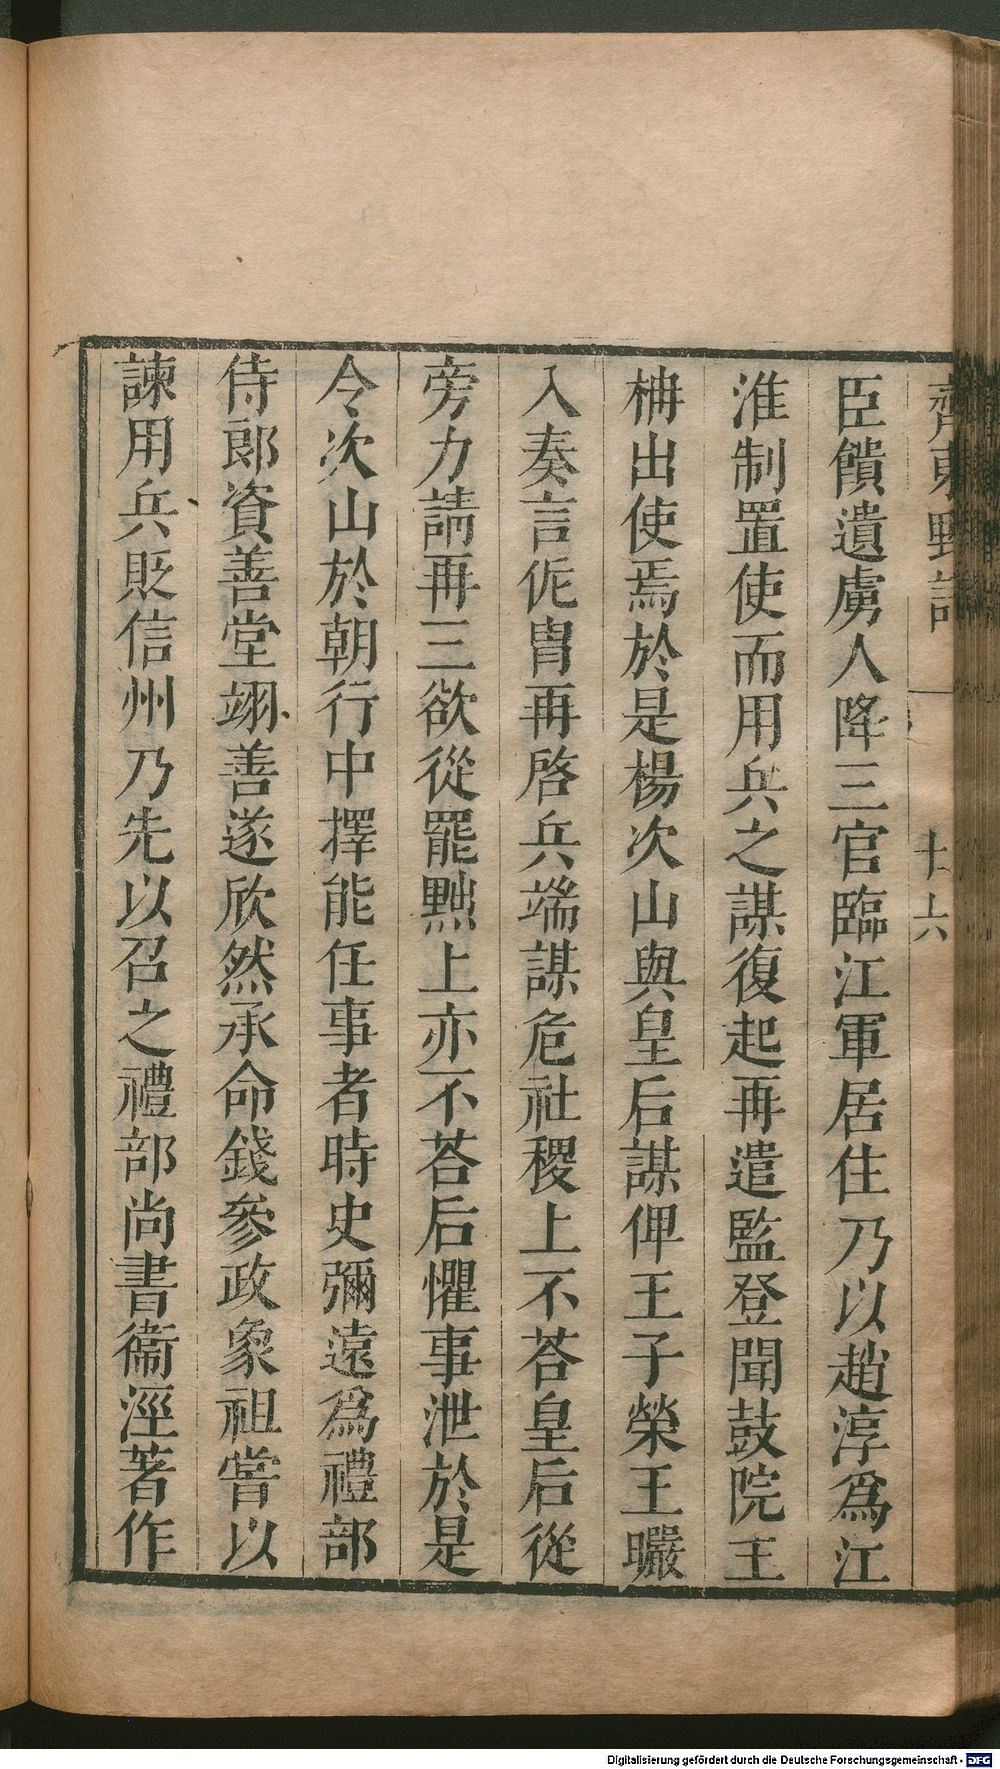 齊東野語
十六
臣饋遺虜人降三官臨江軍居住乃以趙淳爲江
淮制置使而用兵之謀復起再遣監登聞鼓院王
柟出使焉於是楊次山與皇后謀俾王子榮王曮
入奏言侂胄再啓兵端謀危社稷上不荅皇后從
旁力請再三欲從罷黜上亦不荅后懼事泄於是
令次山於朝行中擇能任事者時史彌遠爲禮部
侍郎資善堂翊善遂欣然承命錢參政象祖嘗以
諫用兵貶信州乃先以召之禮部尚書衞涇著作
Digitalisierung gefördert durch die Deutsche Forschungsgemeinschaft - DFG